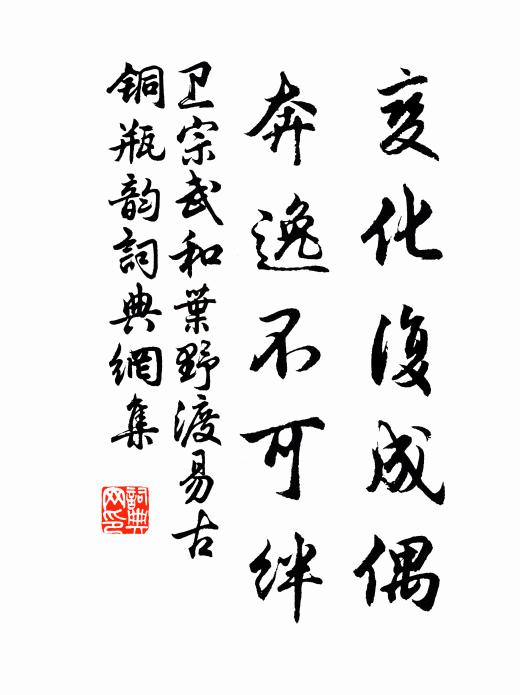 变化復成偶
奔逸不可绊
卫宗武和葉野渡易古
铜瓶韵詞典網集
詞典网印